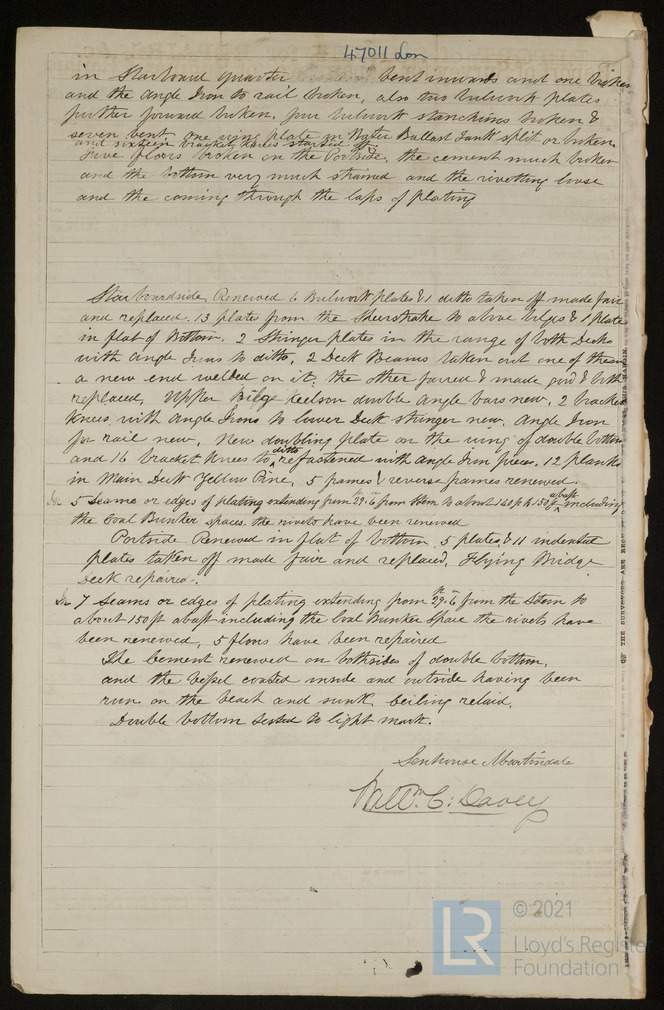 47011 Lon
in Starboard quarter bent inwards and one broken
and the Angle Iron to rail broken, also two bulwark plates
further forward broken. four bulwark stanchions broken &
seven bent. one wing plate on Water Ballast Tank split or broken,
and sixteen bracket knees started off.
Five floors broken on the Portside, the cement much broken
and the bottom very much strained and the rivetting loose
and the coming through the laps of plating
Starboardside, Renewed 6 Bulwark plates & 1 ditto taken off made fair
and replaced. 13 plates from the Sheerstrake to above bilges & 1 plate
in flat of Bottom. 2 Stringer plates in the range of both Decks
with Angle Irons to ditto, 2 Deck Beams taken out one of them
a new end welded on it, the other faired & made good & both
replaced, Upper Bilge keelson double Angle bars new. 2 bracket
knees with Angle Irons to lower Deck stringer new. Angle Iron
for rail new. New doubling plate on the wing of double bottom
and 16 bracket knees to ditto refastened with Angle Iron pieces. 12 planks
in Main Deck Yellow Pine, 5 frames & reverse frames renewed.
In 5 seams or edges of plating extending from 29.6 from Stem to about 140 ft to 150 ft abaft including
the Coal Bunker spaces the rivets have been renewed
Portside Renewed in flat of bottom 5 plates, & 11 indented
plates taken off made fair and replaced, Flying Bridge
Deck repaired.
In 7 seams or edges of plating extending from 29 ft 6 in from the Stem to
about 150 ft abaft including the Coal Bunker space the rivets have
been renewed, 5 floors have been repaired
The Cement renewed on bothsides of double bottom,
and the vessel coated inside and outside having been
run on the beach and sunk, ceiling relaid,
Double bottom tested to light mark.
Senhouse Martindale
Walt. C. Davey
OF THE SURVEYORS ARE
MARGIN.
LR
© 2021
Lloyd's Register
Foundation